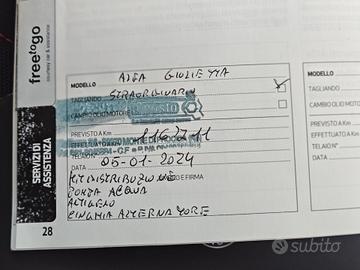 freetogo
courtesy car & assistance
SERVIZI DI
ASSISTENZA
MODELLO ALFA GIULIETTA
TAGLIANDO STRAORDINARIO
CAMBIO OLIO MOTORE
PREVISTO A Km
EFFETTUATO A Km
TELAIO N°
DATA 05-01-2024
KIT DISTRIBUZIONE
POMPA ACQUA
ANTIGELO
CINGHIA ALTERNATORE
28
MODELLO
TAGLIANDO
CAMBIO OLIO MO
PREVISTO A Km
EFFETTUATO A K
TELAIO N°
DATA
subito